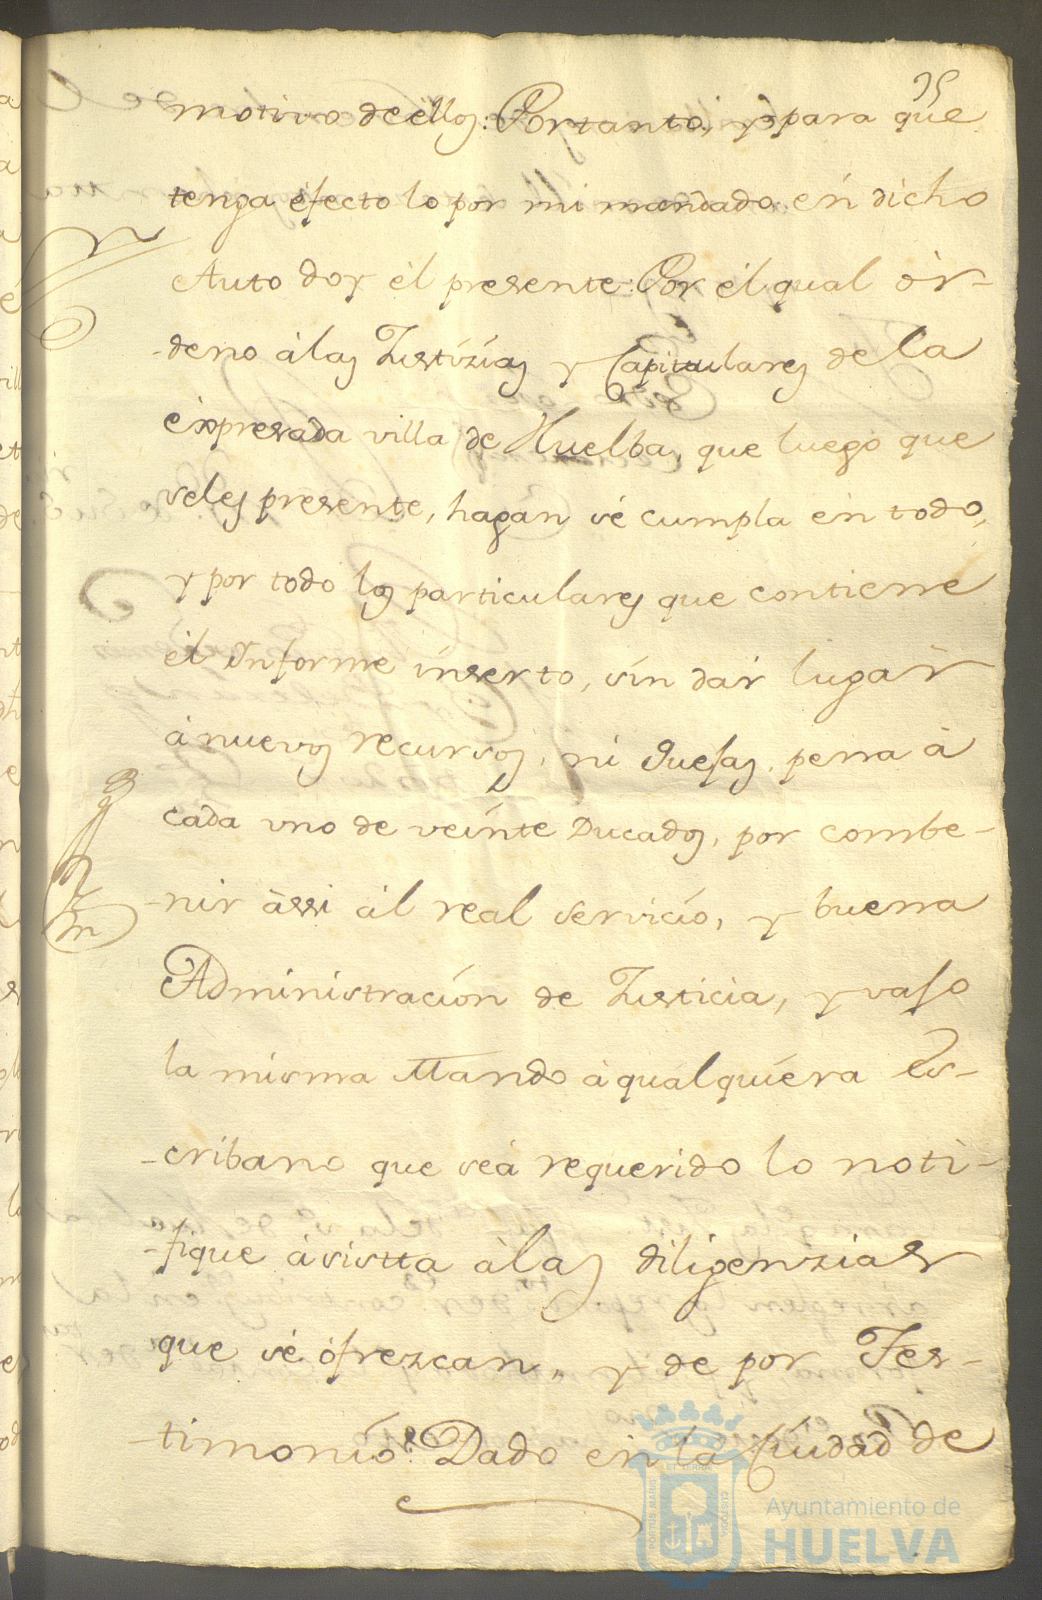 35
motivo de ellos: Portanto, y para que
tenga éfecto lo por mi mandado en dicho
Auto doy él presente: Por él qual òr-
-deno à las Justizias y Capitulares de la
expresada villa de Huelba, que luego que
seles presente, hagan se cumpla en todo,
y por todo los particulares que contiene
él Informe inserto, sin dar lugar
à nuevos recursos, ni quejas, pena à
cada uno de veinte Ducados, por combe-
-nir àssi àl real servicio, y buena
Administración de Justicia, y vajo
la misma Mando à qualquiera Es-
-cribano que seà requerido lo noti-
-fique àsistta à las diligenzias
que se ófrezcan, y de por Tes-
-timonio: Dado en la Ciudad de
Ayuntamiento de
HUELVA